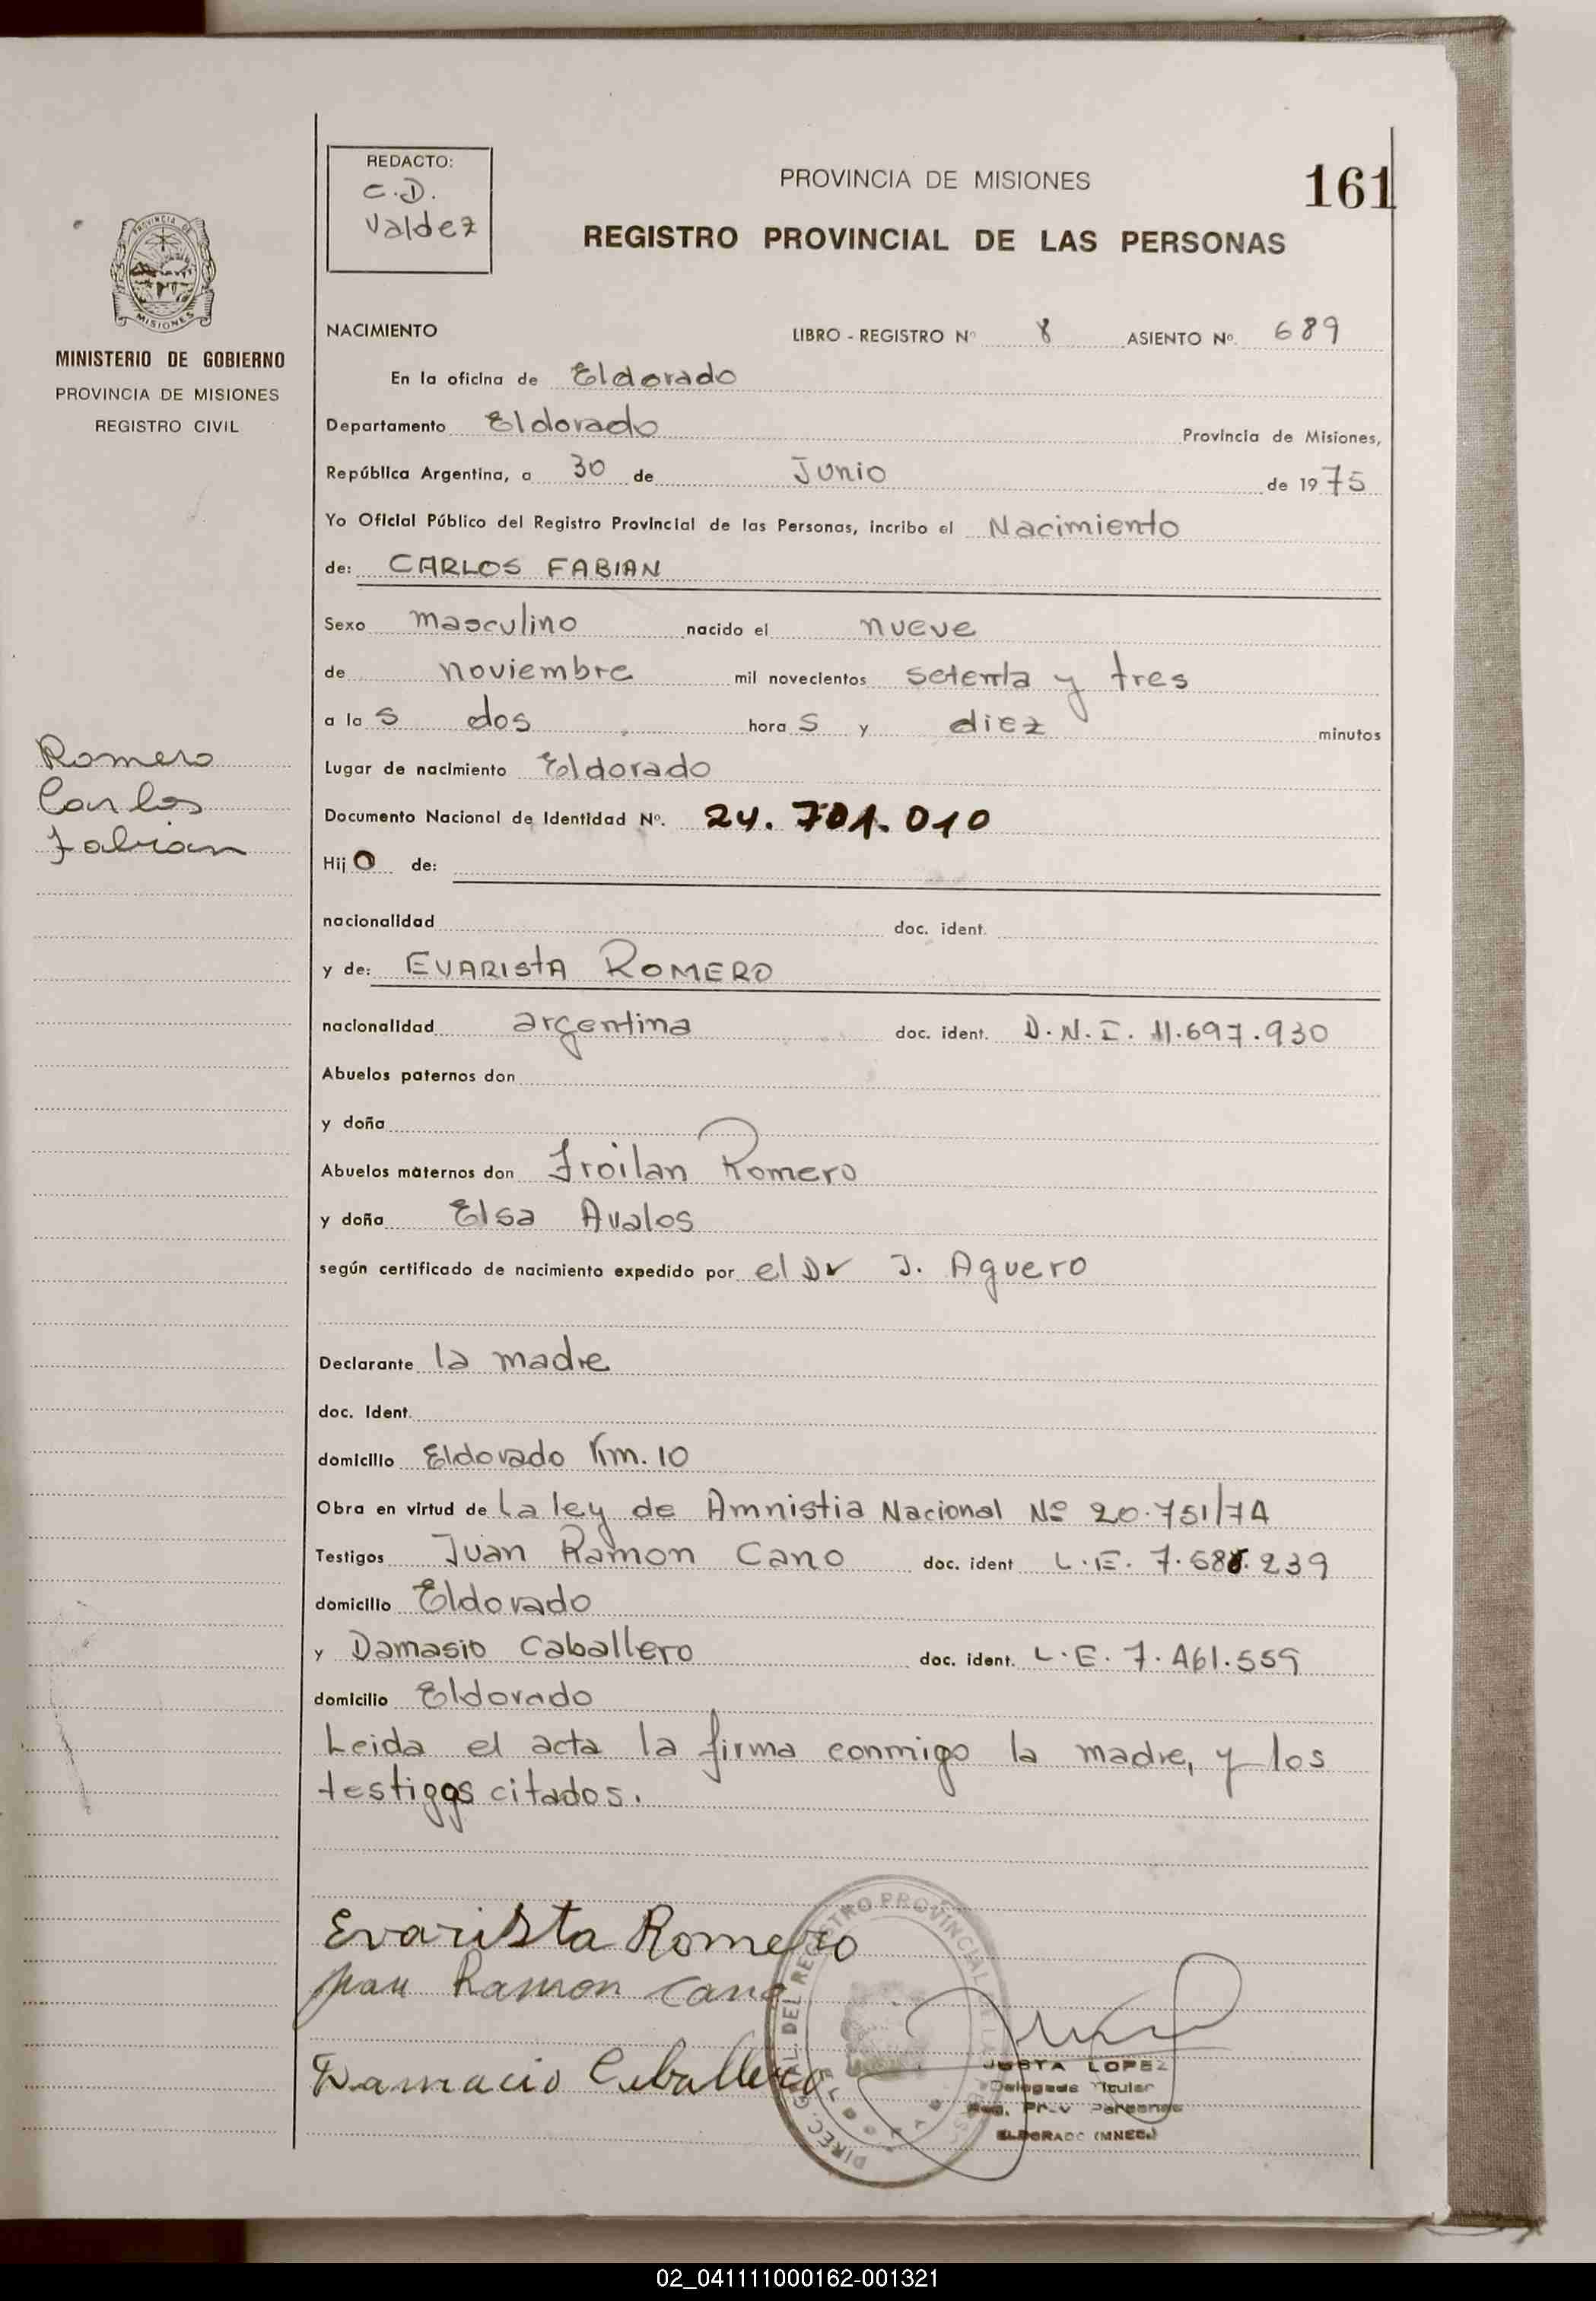 REDACTO:
C.D.
Valdez
PROVINCIA DE MISIONES
161
REGISTRO PROVINCIAL DE LAS PERSONAS
PROVINCIA DE
MISIONES
MINISTERIO DE GOBIERNO
PROVINCIA DE MISIONES
REGISTRO CIVIL
NACIMIENTO LIBRO - REGISTRO Nº 8 ASIENTO Nº. 689
En la oficina de Eldorado
Departamento Eldorado Provincia de Misiones,
República Argentina, a 30 de Junio de 1975
Yo Oficial Público del Registro Provincial de las Personas, incribo el Nacimiento
de: CARLOS FABIAN
Sexo masculino nacido el nueve
de noviembre mil novecientos setenta y tres
a las dos horas y diez minutos
Lugar de nacimiento Eldorado
Romero
Carlos
Fabian
Documento Nacional de Identidad Nº. 24.701.010
Hijo de:
nacionalidad doc. ident.
y de: EVARISTA ROMERO
nacionalidad argentina doc. ident. D.N.I. 11.697.930
Abuelos paternos don
y doña
Abuelos maternos don Froilan Romero
y doña Elsa Avalos
según certificado de nacimiento expedido por el Dr J. Aguero
Declarante la madre
doc. Ident.
domicilio Eldorado Km. 10
Obra en virtud de La ley de Amnistia Nacional Nº 20.751/74
Testigos Juan Ramon Cano doc. ident L.E. 7.688.239
domicilio Eldorado
y Damasio Caballero doc. ident. L.E. 7.461.559
domicilio Eldorado
Leida el acta la firma conmigo la madre, y los
testigos citados.
Evarista Romero
Juan Ramon Cano
Damacio Ceballero
DIREC. GRAL. DEL REGISTRO PROVINCIAL DE LAS
ELDORADO
JUSTA LOPEZ
Delegada Titular
Reg. Prov Personas
ELDORADO (MNES.)
02_041111000162-001321